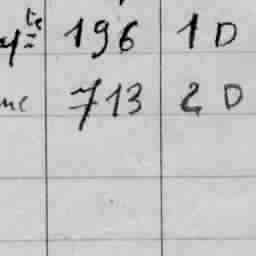 y^te 196 1 D
me 713 2 D